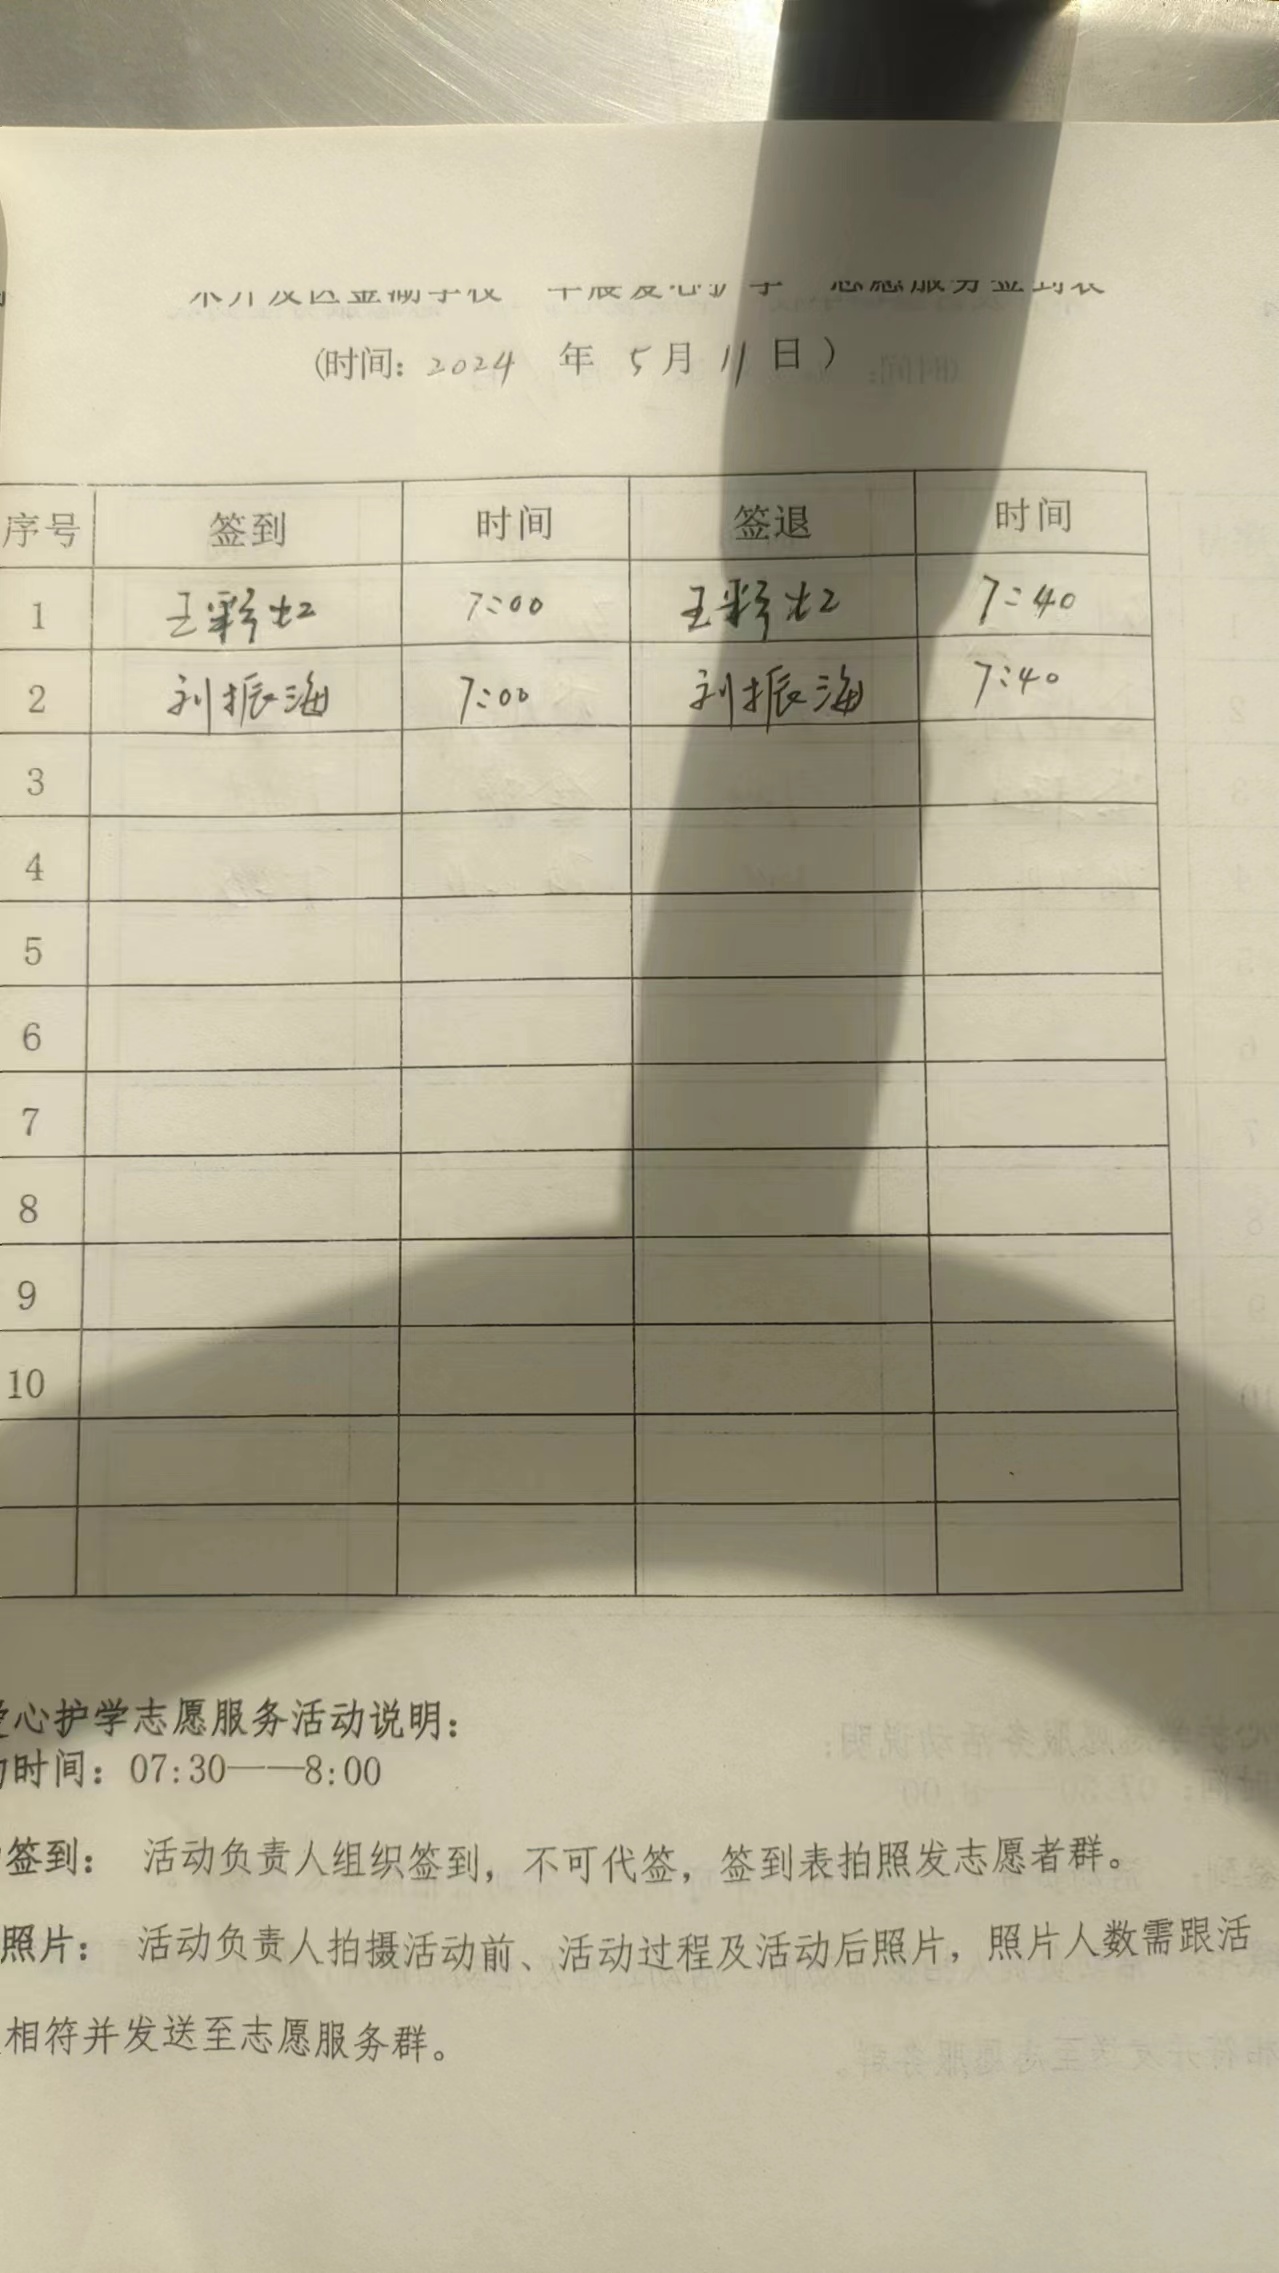 开发区金湖学校 早晨爱心护学 志愿服务签到表
(时间: 2024 年 5月 11 日 )
序号 签到 时间 签退 时间
1 王彩 7:00 王彩 7:40
2 刘振海 7:00 刘振海 7:40
3
4
5
6
7
8
9
10
心护学志愿服务活动说明:
时间: 07:30——8:00
签到: 活动负责人组织签到, 不可代签, 签到表拍照发志愿者群。
照片: 活动负责人拍摄活动前、活动过程及活动后照片, 照片人数需跟活
相符并发送至志愿服务群。